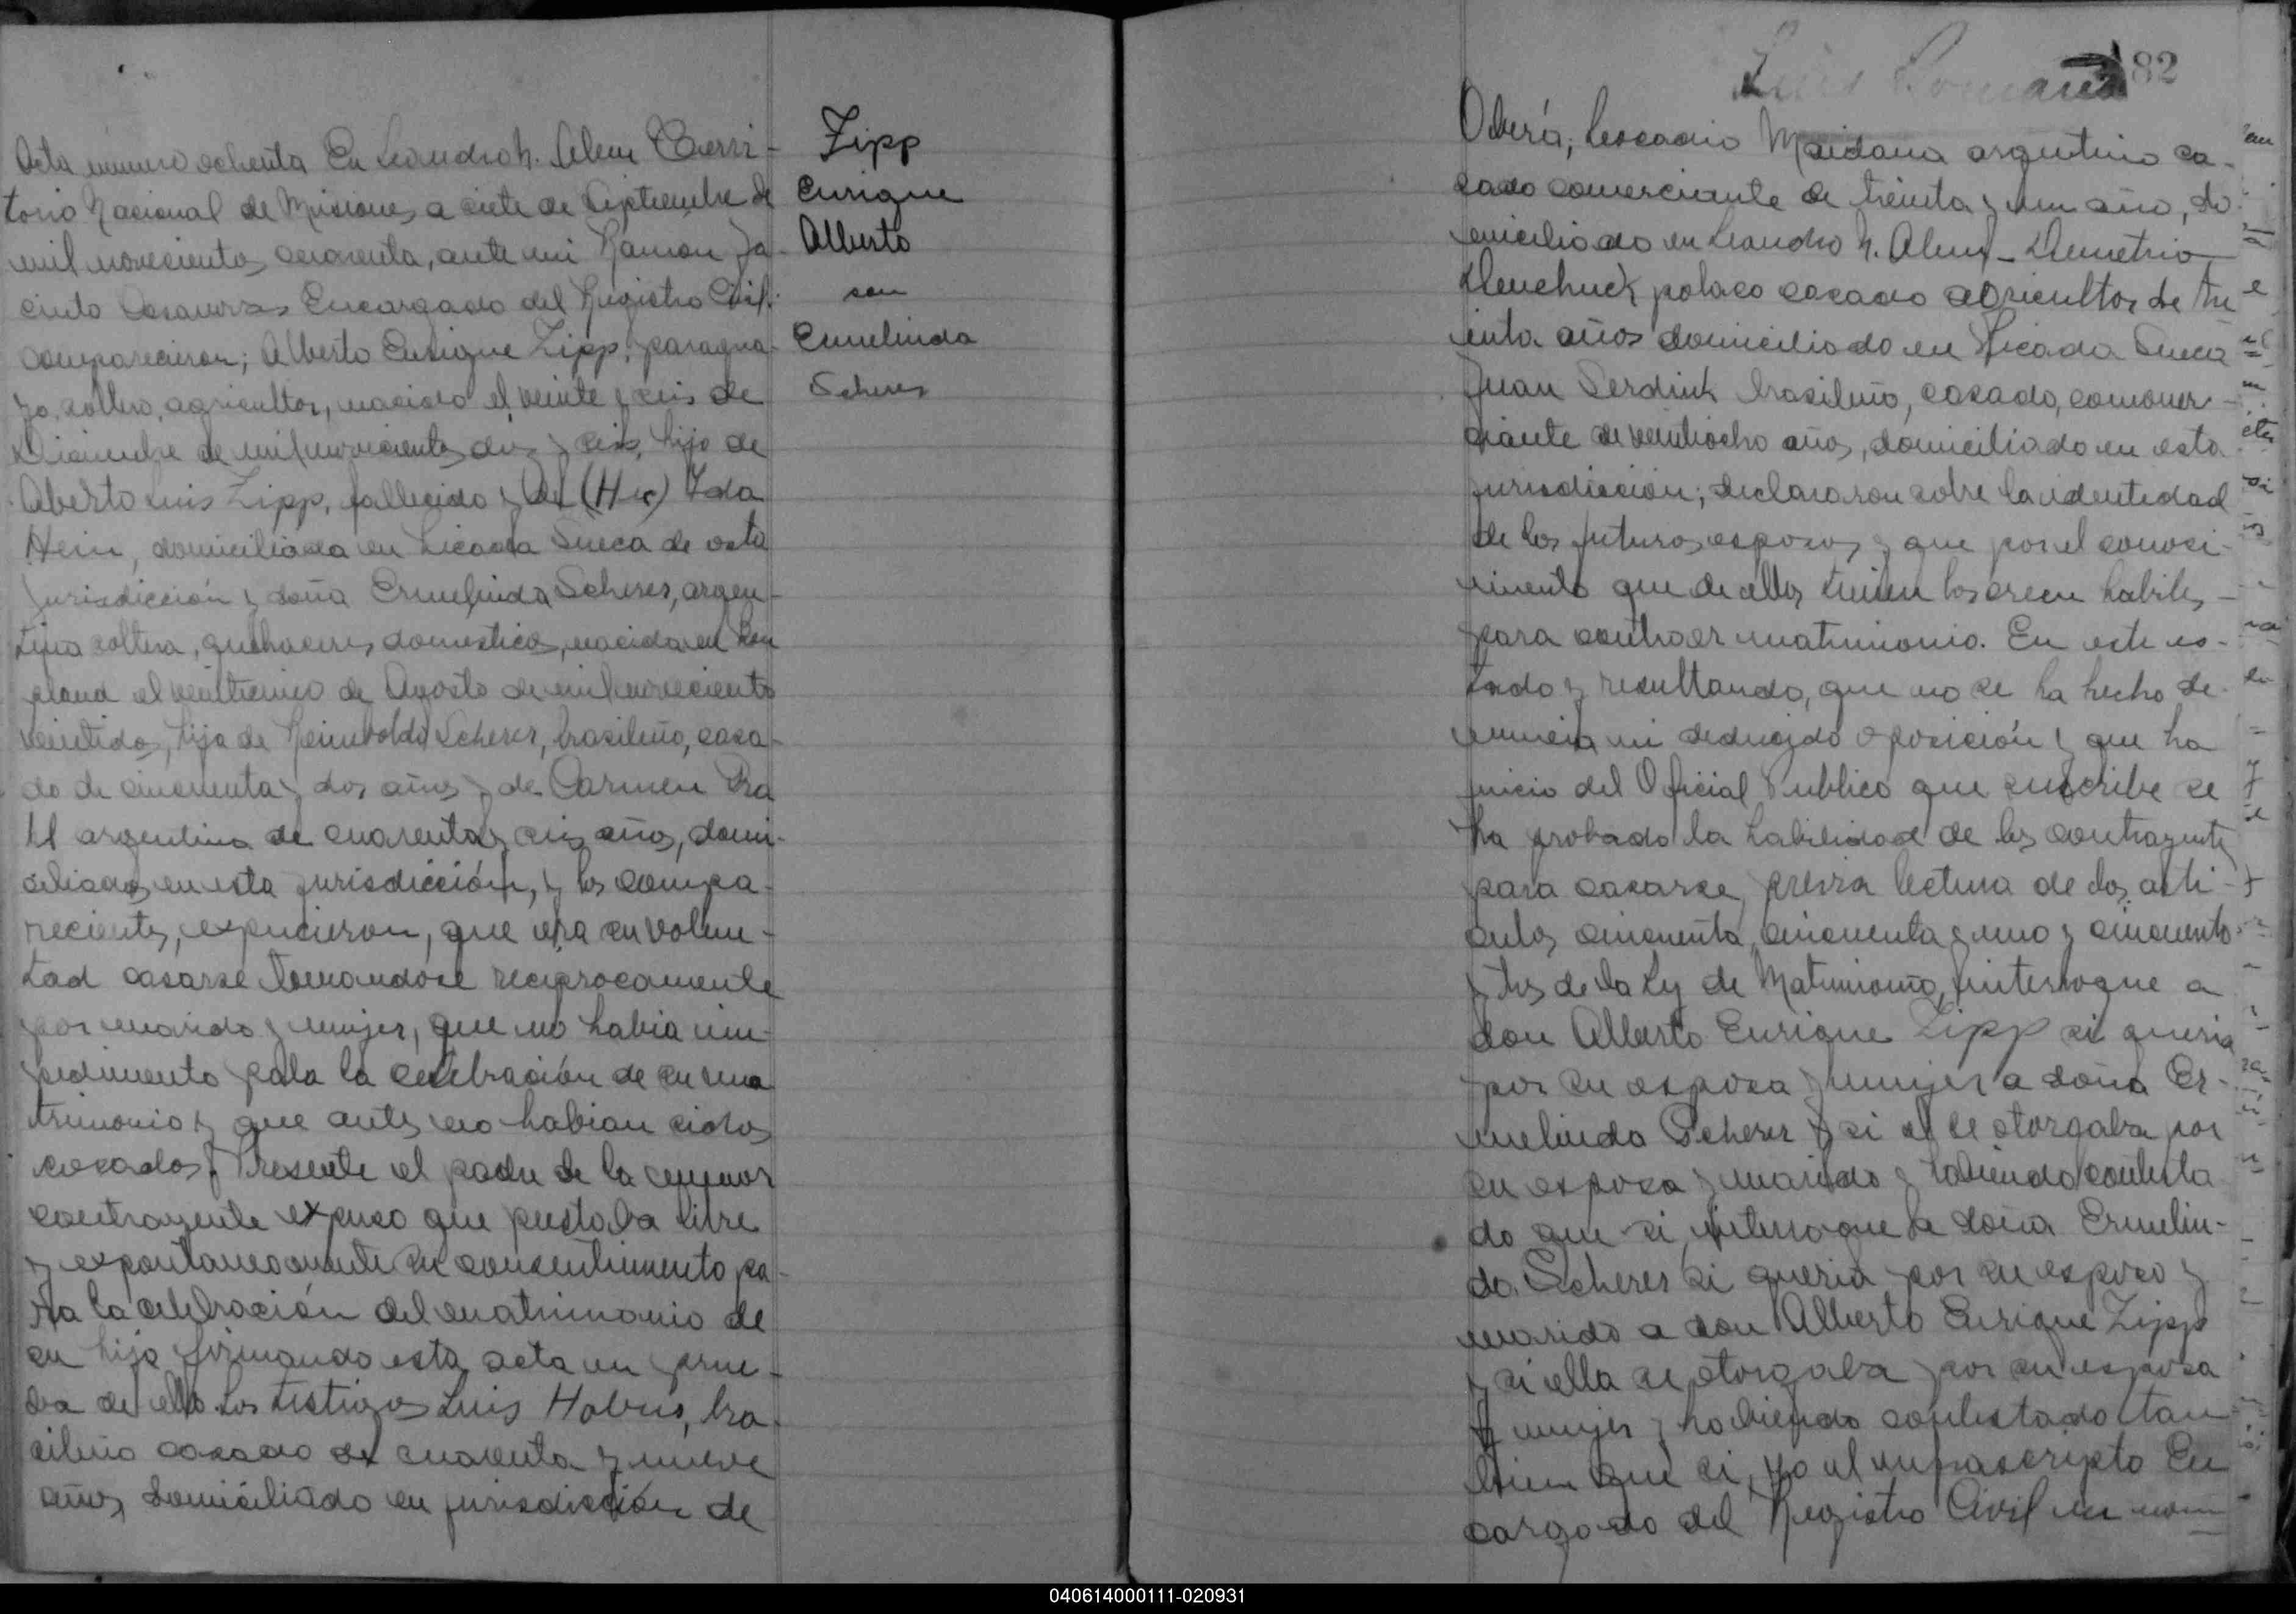 Acta numero ochenta En Leandro N. Alem Terri-
torio Nacional de Misiones a siete de Septiembre de
mil novecientos cuarenta, ante mi Ramón Ja-
cinto Encargado del Registro Civil.
comparecieron; Alberto Enrique Zipp, paragua-
yo, soltero, agricultor, nacido el veinte y seis de
Diciembre de mil novecientos diez y seis, hijo de
Alberto Luis Zipp, fallecido y de Ida
Hein, domiciliada en Picada Sueca de esta
Jurisdicción y doña Ermelinda Scherer, argen-
tina soltera, quehaceres domesticos, nacida en
el veinticinco de Agosto de mil novecientos
veintidos, hija de Reinholdo Scherer, brasileño, casa-
do de cincuenta y dos años y de Carmen
argentina de cuarenta y seis años, domi-
ciliados en esta jurisdicción, y los compa-
recientes, expucieron, que era su volun-
tad casarse tomandose reciprocamente
por marido y mujer, que no habia im-
pedimento para la celebración de su ma
trimonio y que antes no habian sidos
casados. Presente el padre de la menor
contrayente expuso que prestaba libre
y espontaneamente su consentimiento pa-
ra la celebración del matrimonio de
su hija firmando esta acta en prue-
ba de ello. Los testigos Luis bra-
sileño casado de cuarenta y nueve
años, domiciliado en jurisdicción de
Zipp
Enrique
Alberto
con
Ermelinda
Scherer
82
Oberá, Leocadio Maidana argentino ca-
sado comerciante de treinta y un año, do
miciliado en Leandro N. Alem - Demetrio
polaco casado agricultor de tre
inta años domiciliado en Picada Sueca
Juan brasileño, casado, comover-
ciante de veintiocho años, domiciliado en esta
jurisdicción; declararon sobre la identidad
de los futuros esposos y que por el conoci-
miento que de ellos tienen los creen habiles
para contraer matrimonio. En este es-
tado y resultando, que no se ha hecho de-
nuncia ni deducido oposición y que ha
juicio del Oficial Publico que suscribe se
ha probado la habilidad de los contrayentes
para casarse, previa lectura de los arti-
culos cincuenta, cincuenta y uno y cincuenta
y tres de la Ley de Matrimonio, interrogue a
don Alberto Enrique Zipp si queria
por su esposa y mujer a doña Er-
melinda Scherer y si el se otorgaba por
su esposo y marido y habiendo contesta
do que si, interrogue a doña Ermelin-
da Scherer si queria por su esposo y
marido a don Alberto Enrique Zipp
y si ella se otorgaba por su esposa
y mujer y habiendo contestado tam
bien que si, yo el infrascripto En
cargado del Registro Civil en nom
040614000111-020931